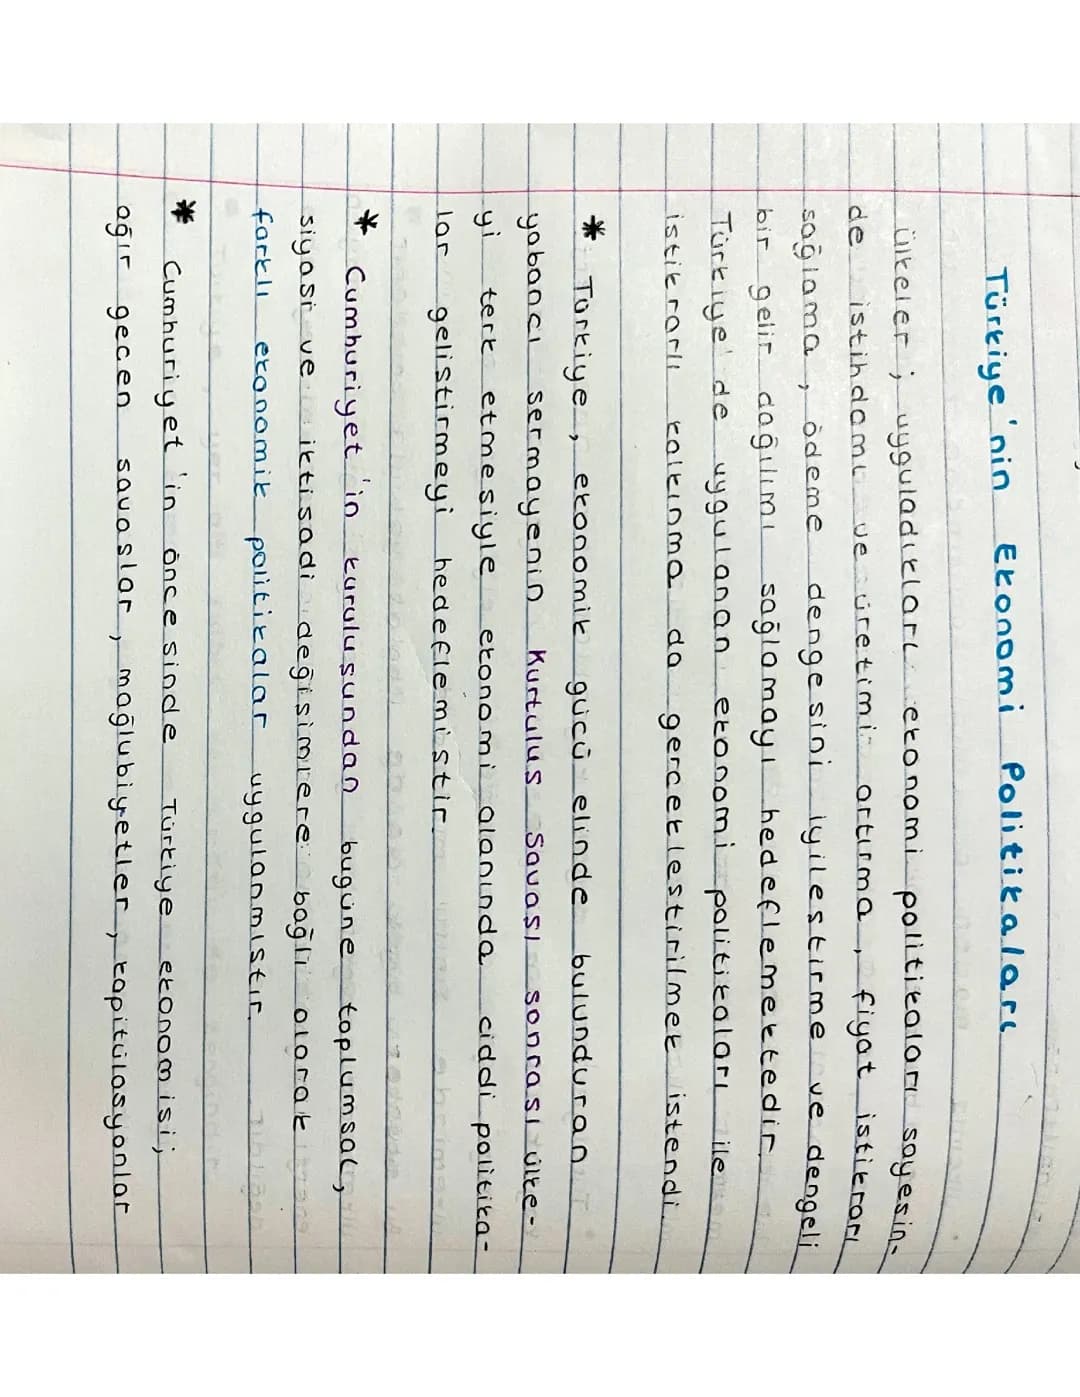 Türkiye'nin Ekonomi Politikaları
Ülkeler; uyguladıkları ekonomi politikaları sayesin-
de istihdamı ve üretimi artırma, fiyat istikrarı
sağlama, ödeme dengesini iyilestirme ve dengeli
bir gelir dağılımı sağlamayı hedeflemektedir.
Türkiye'de uygulanan ekonomi politikaları ile
istikrarlı kalkınma da gerceklestirilmek istendi.
* Türkiye, ekonomik gücü elinde bulunduran
yabancı sermayenin Kurtulus Savası sonrası ülke-
yi terk etmesiyle ekonomi alanında ciddi politika-
lar gelistirmeyi hedeflemistir.
* Cumhuriyet'in kurulusundan bugüne toplumsal,
siyasi ve iktisadi değisimlere bağlı olarak
farklı ekonomik politikalar uygulanmıstır.
* Cumhuriyet'in öncesinde Türkiye ekonomisi;
ağır gecen savaslar, mağlubiyetler, kapitülasyonlar